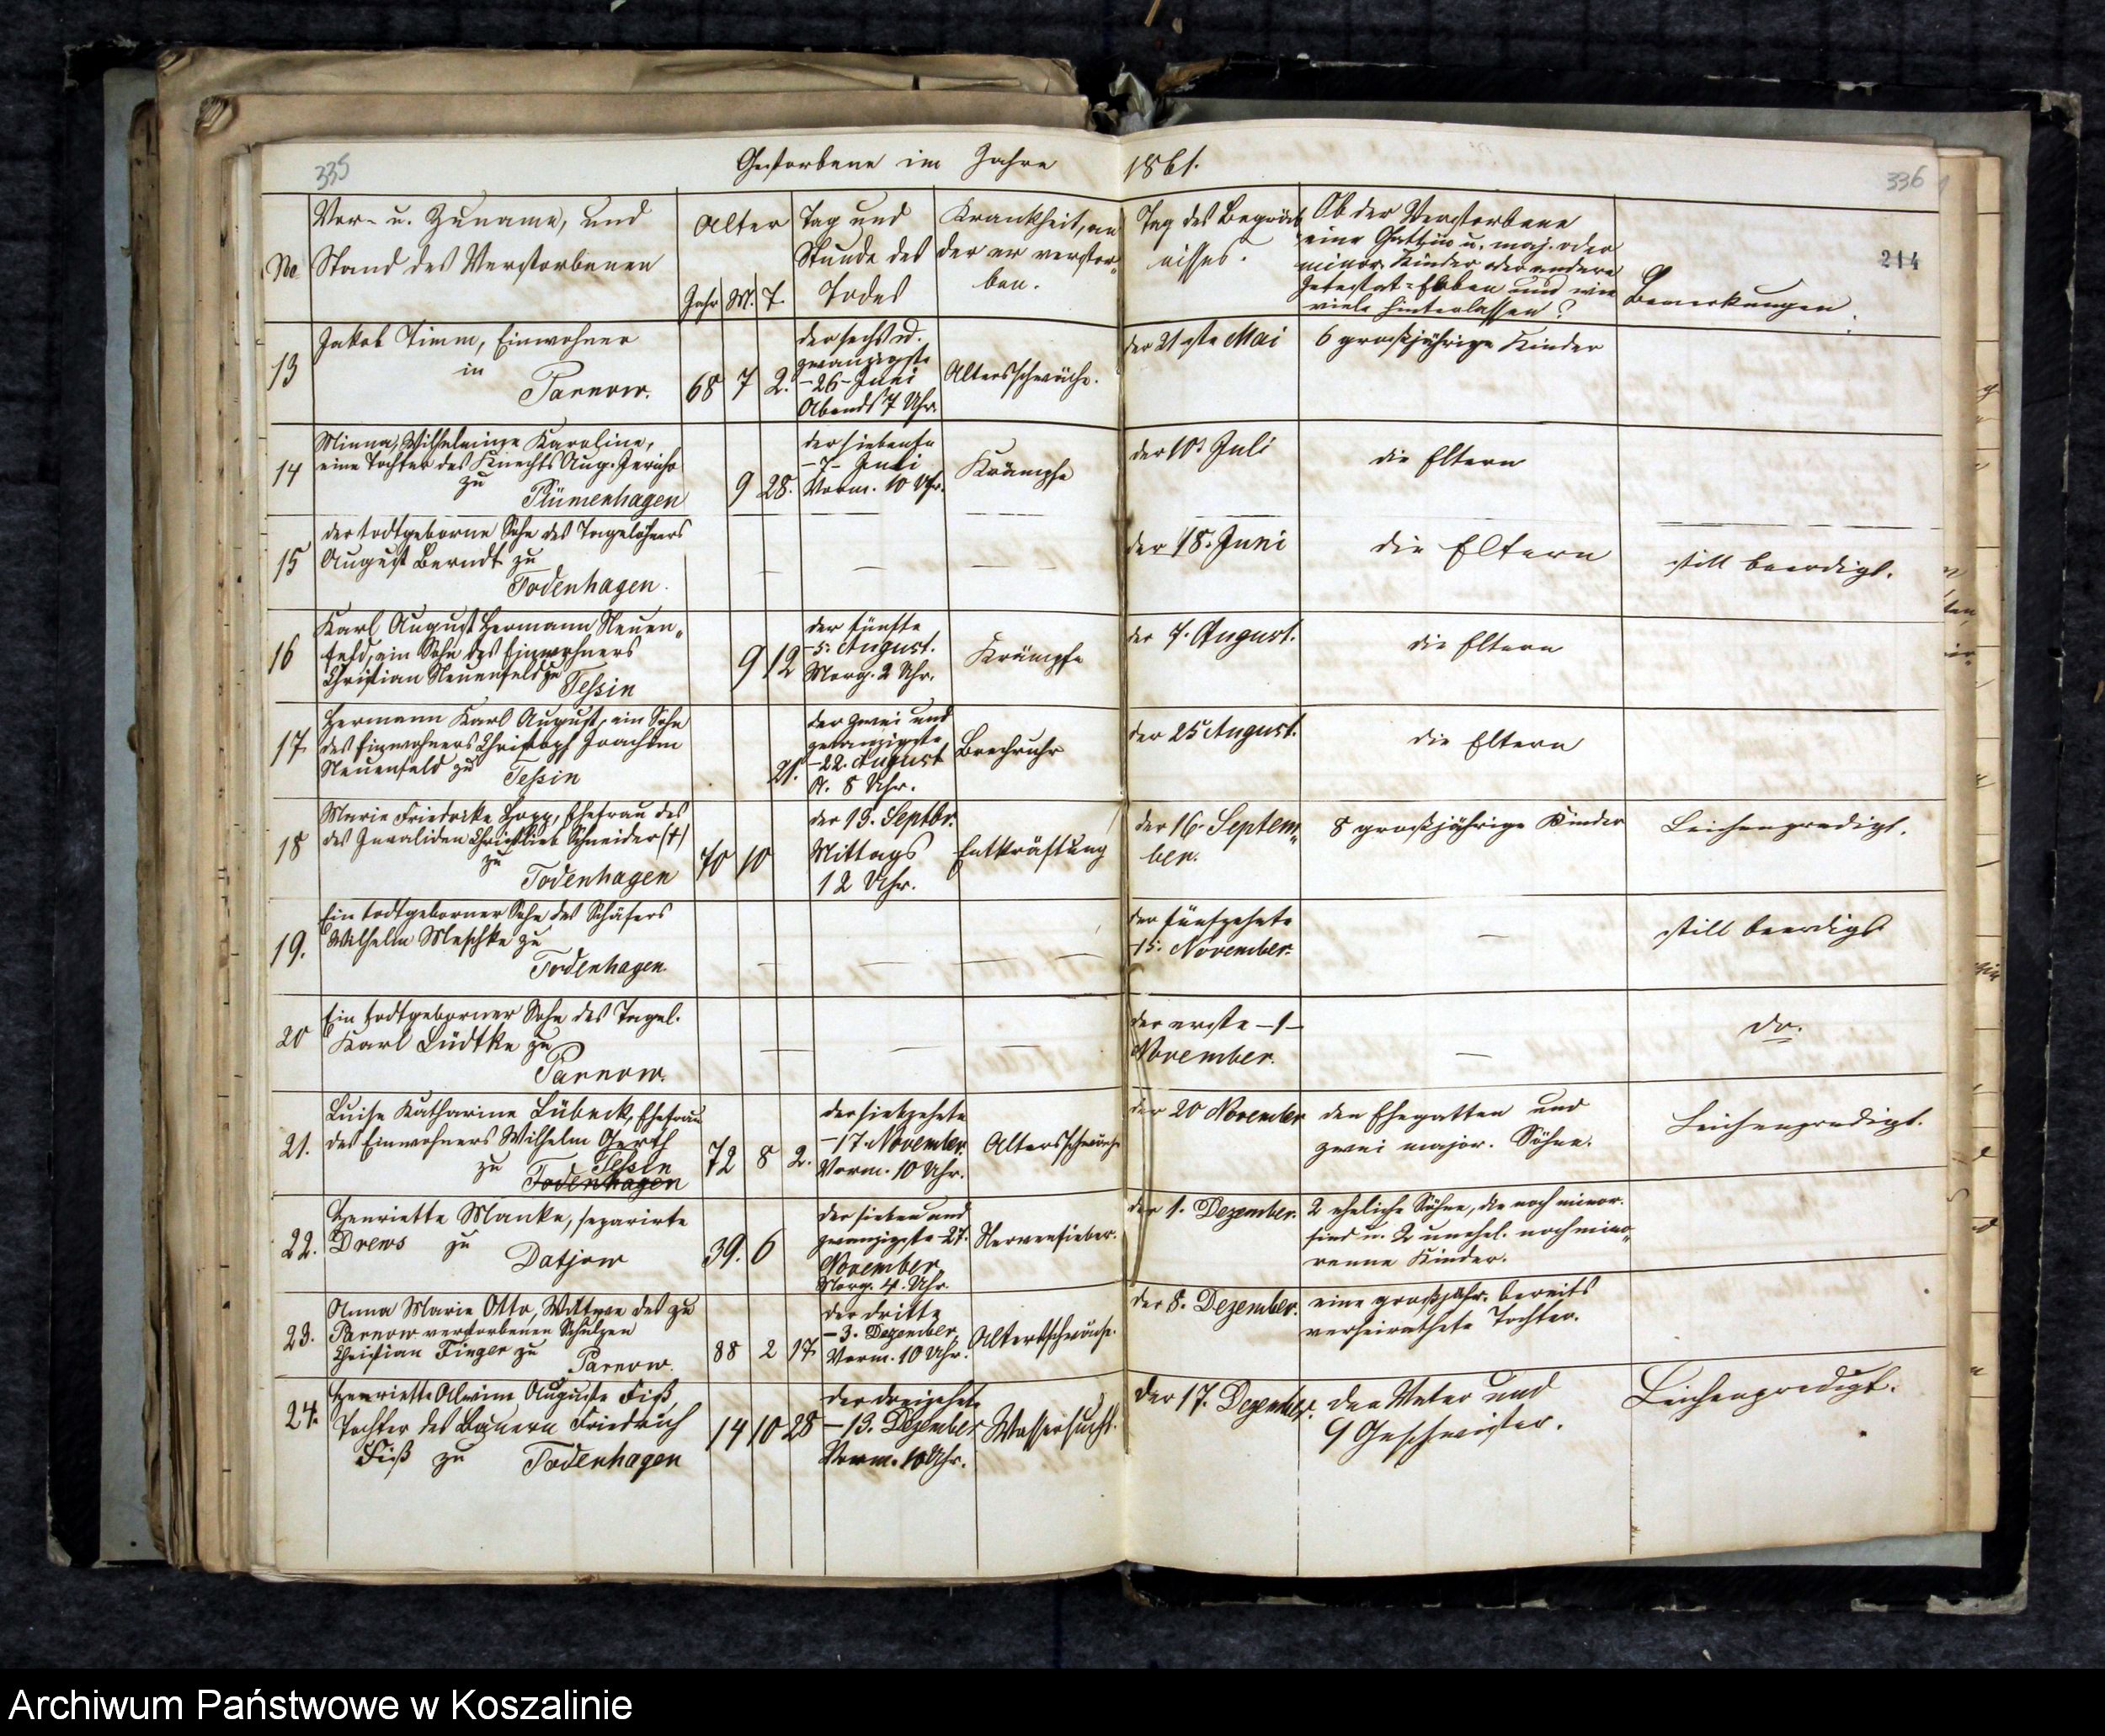 335
Gestorbene im Jahre 1861.
336
214
No
Vor- u. Zuname, und
Stand des Verstorbenen
Alter
Jahr M. T.
Tag und
Stunde des
Todes
Krankheit, an
der er verstor-
ben.
Tag des Begräb-
nisses.
Ob der Verstorbene
eine Gattin u. maj. oder
minor. Kinder oder andere
Intestat-Erben und wie
viele hinterlassen?
Bemerkungen.
13
Jakob Timm, Einwohner
in
Parnow.
68 7 2.
der sechs u.
zwanzigste
-26- Juni
Abends 7 Uhr.
Altersschwäche.
der 21ste Mai
6 großjährige Kinder
14
Minna, Wilhelmine Karoline,
eine Tochter des Knechts Aug. Jericho
zu
Plümenhagen
9 28.
der siebente
-7- Juli
Vorm. 10 Uhr.
Krämpfe
der 10. Juli
die Eltern
15
der todtgeborne Sohn des Tagelöhners
August Berndt zu
Todenhagen.
— — — —
der 18. Juni
die Eltern
still beerdigt.
16
Karl August Hermann Neuen-
feld, ein Sohn des Einwohners
Christian Neuenfeld zu
Tessin
9 12
der fünfte
-5. August.
Morg. 2 Uhr.
Krämpfe
der 7. August.
die Eltern
17.
Hermann Karl August, ein Sohn
des Einwohners Christoph Joachim
Neuenfeld zu Tessin
21.
der zwei und
zwanzigste
-22. August
A. 8 Uhr.
Brechruhr
der 25 August.
die Eltern
18
Marie Friedrike Hopp, Ehefrau des
des Invaliden Christlieb Schneider (†)
zu
Todenhagen
70 10
der 13. Septbr.
Mittags
12 Uhr.
Entkräftung
der 16. Septem-
ber.
8 großjährige Kinder
Leichenpredigt.
19.
Ein todtgeborner Sohn des Schäfers
Wilhelm Meschke zu
Todenhagen.
— — — —
der fünfzehnte
-15. November.
—
still beerdigt
20
Ein todtgeborner Sohn des Tagel.
Karl Lüdtke zu
Parnow.
— — —
der erste -1-
November.
—
do.
21.
Luise Katharine Lübeck, Ehefrau
des Einwohners Wilhelm Gerth
zu Tessin
Todenhagen
72 8 2.
der siebzehnte
-17. November.
Vorm. 10 Uhr.
Altersschwäche
der 20 November
den Ehegatten und
zwei major. Söhne.
Leichenpredigt.
22.
Henriette Manke, separirte
Drews zu
Datjow
39. 6
der sieben und
zwanzigste -27.
November
Morg. 4. Uhr.
Nervenfieber.
der 1. Dezember.
2 eheliche Söhne, die noch minor.
sind u. 2 unehel. noch mino-
renne Kinder.
23.
Anna Marie Otto, Wittwe des zu
Parnow verstorbenen Schulzen
Christian Finger zu
Parnow.
88 2 17
der dritte
-3. Dezember
Vorm. 10 Uhr.
Altersschwäche.
der 8. Dezember.
eine großjähr. bereits
verheirathete Tochter.
24.
Henriette Alwine Auguste Fiß,
Tochter des Bauern Friedrich
Fiß zu Todenhagen
14 10 28
der dreizehnte
-13. Dezember
Vorm. 10 Uhr.
Wassersucht.
der 17. Dezember.
den Vater und
9 Geschwister.
Leichenpredigt.
Archiwum Państwowe w Koszalinie